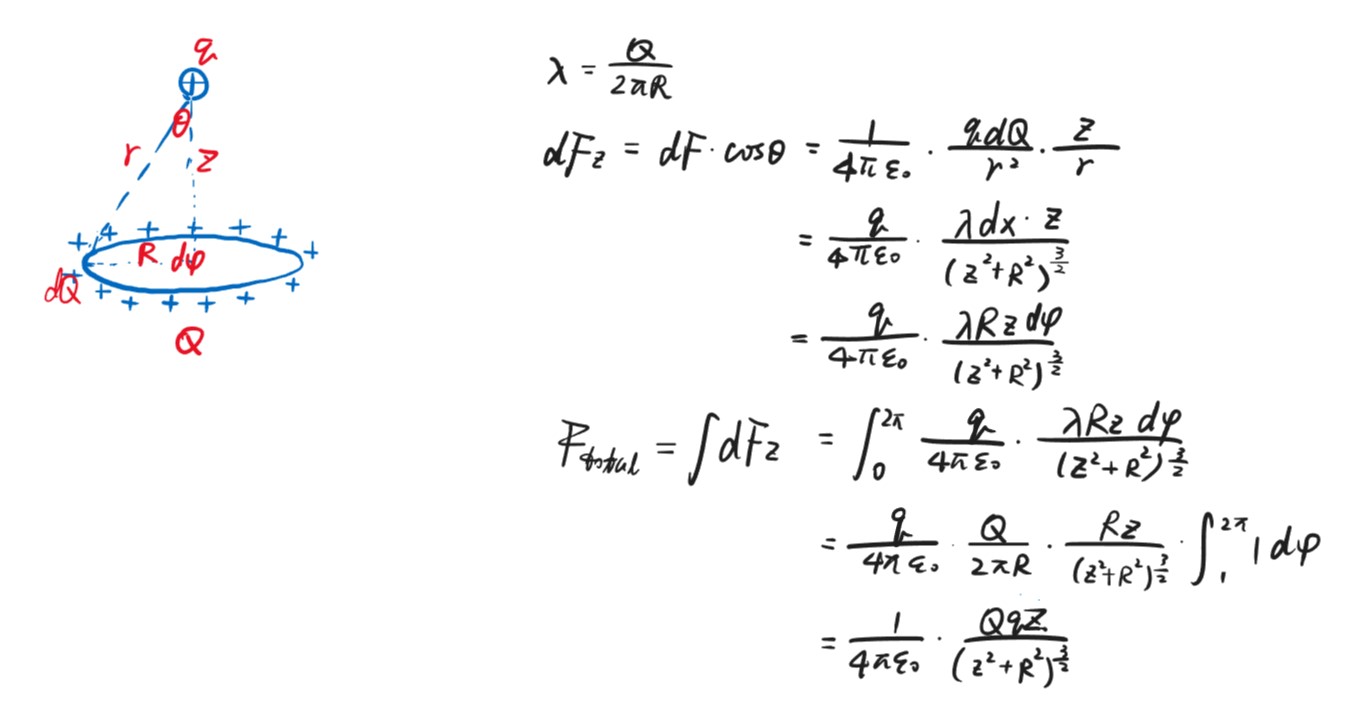 q
θ
r
z
R dφ
dQ
Q
λ = Q / 2πR
dFz = dF · cosθ = 1/(4πε₀) · q dQ / r² · z/r
= q/(4πε₀) · λdx · z / (z²+R²)^(3/2)
= q/(4πε₀) · λRz dφ / (z²+R²)^(3/2)
F_total = ∫dFz = ∫₀^(2π) q/(4πε₀) · λRz dφ / (z²+R²)^(3/2)
= q/(4πε₀) · Q/(2πR) · Rz/(z²+R²)^(3/2) · ∫₁^(2π) 1 dφ
= 1/(4πε₀) · Qqz / (z²+R²)^(3/2)